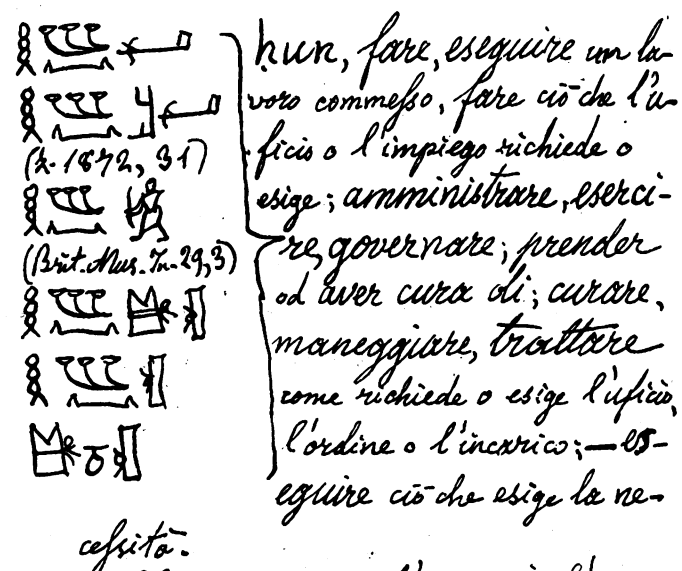 hun, fare, eseguire un la-
voro commesso, fare ciò che l'u-
(z. 1872, 31)
ficio o l'impiego richiede o
esige; amministrare, eserci-
(Brit. Mus. In. 29,3)
re, governare; prender
od aver cura di; curare,
maneggiare, trattare
come richiede o esige l'uficio,
l'ordine o l'incarico; — es-
eguire ciò che esige la ne-
cessità.